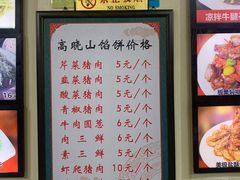 NO SMOKING
凉拌牛腱
高晓山馅饼价格
芹菜猪肉 5元/个
韭菜猪肉 5元/个
酸菜猪肉 5元/个
青椒猪肉 5元/个
牛肉圆葱 6元/个
肉三鲜 6元/个
素三鲜 5元/个
虾爬猪肉 10元/个